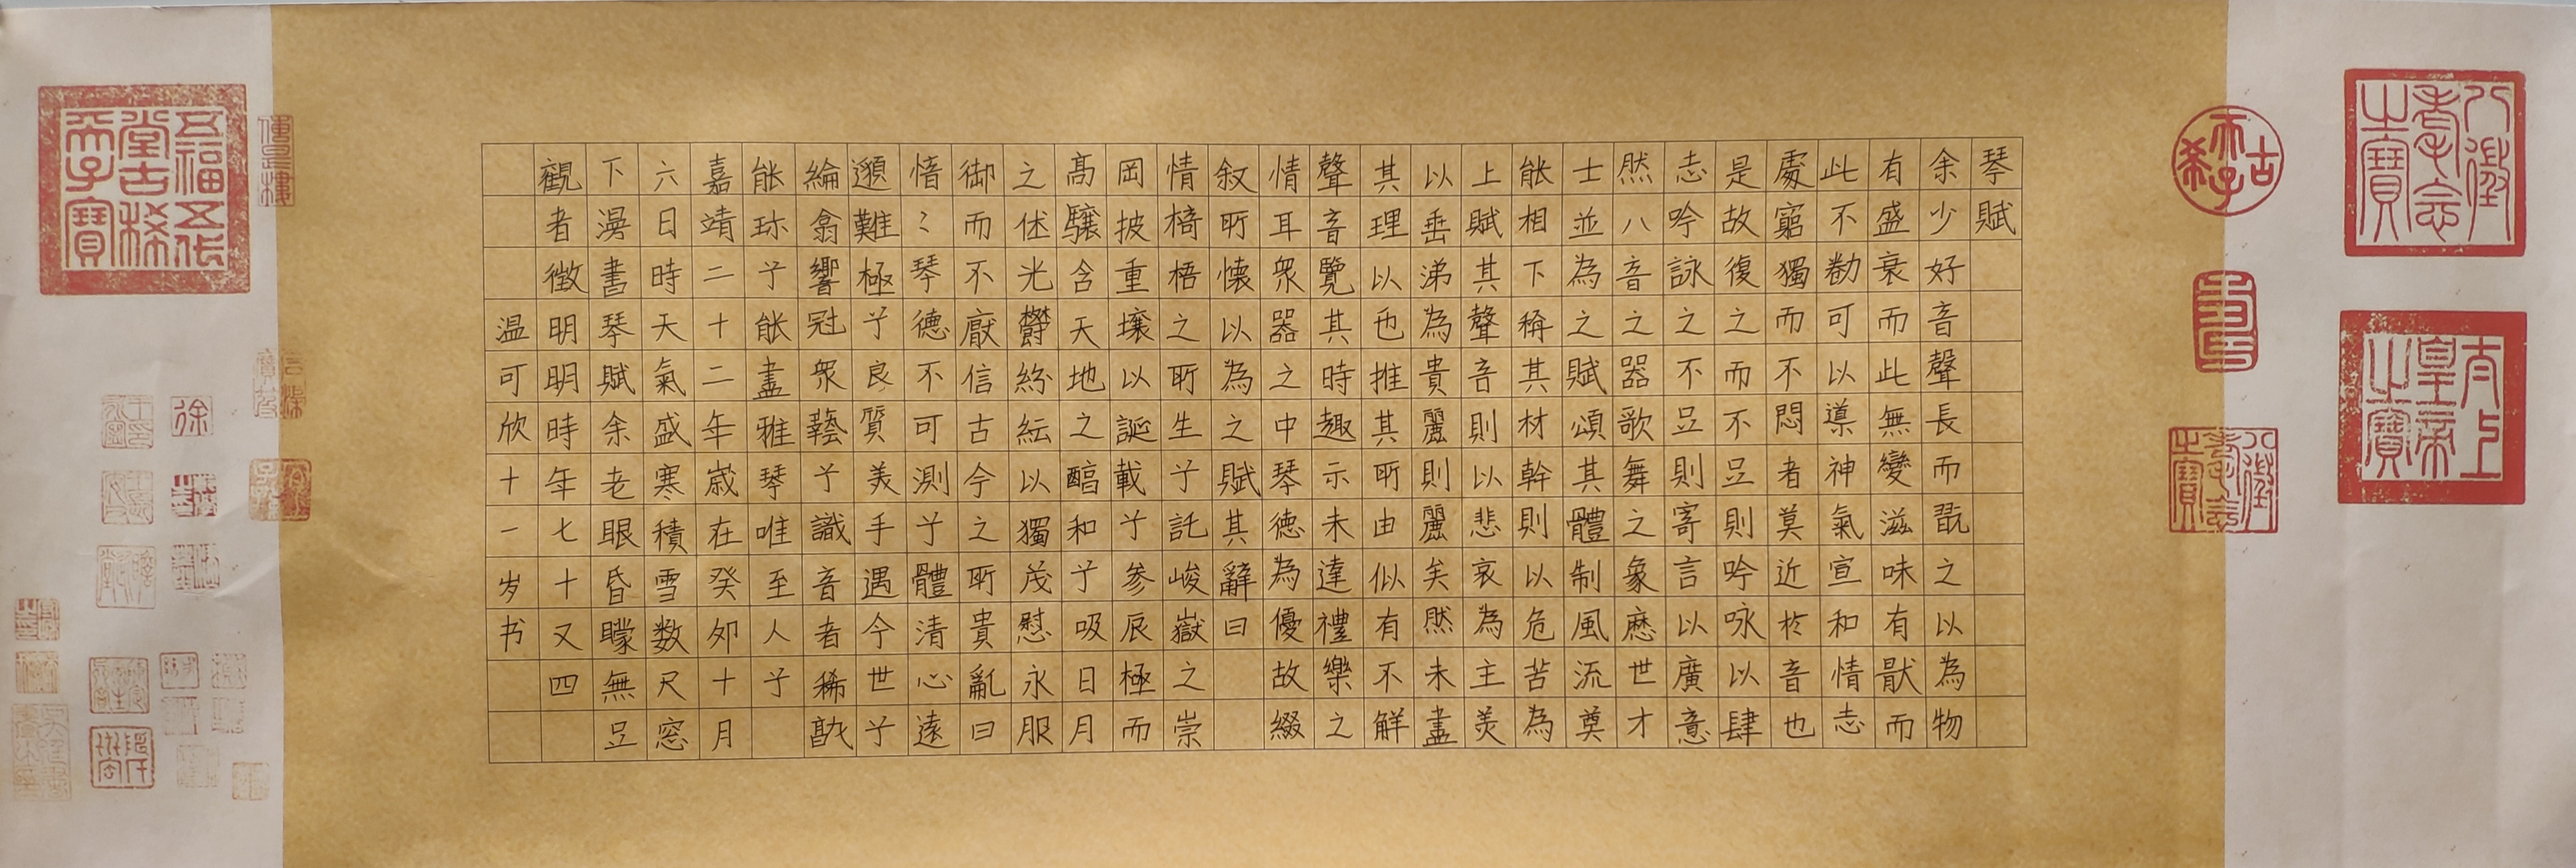 八徵耄念之寶
太上皇帝之寶
古希天子
八徵耄念之寶
琴賦
余少好音聲長而翫之以為物
有盛衰而此無變滋味有猒而
此不勌可以導神氣宣和情志
處窮獨而不悶者莫近於音也
是故復之而不足則吟咏以肆
志吟詠之不足則寄言以廣意
然八音之器歌舞之象歷世才
士並為之賦頌其體制風流莫
能相下稱其材幹則以危苦為
上賦其聲音則以悲哀為主美
以垂涕為貴麗則麗矣然未盡
其理以也推其所由似有不解
聲音覽其時趣示未達禮樂之
情耳眾器之中琴德為優故綴
叙所懷以為之賦其辭曰
情椅梧之所生兮託峻嶽之崇
岡披重壤以誕載兮參辰極而
高驤含天地之醇和兮吸日月
之休光鬱紛紜以獨茂慰永服
御而不厭信古今之所貴亂曰
愔〻琴德不可測兮體清心遠
邈難極兮良質美手遇今世兮
綸翕響冠眾藝兮識音者稀孰
能珍兮能盡雅琴唯至人兮
嘉靖二十二年歲在癸卯十月
六日時天氣盛寒積雪数尺窓
下漫書琴賦余老眼昏矇無足
觀者徵明明時年七十又四
温可欣十一岁书
五福五代堂古稀天子寶